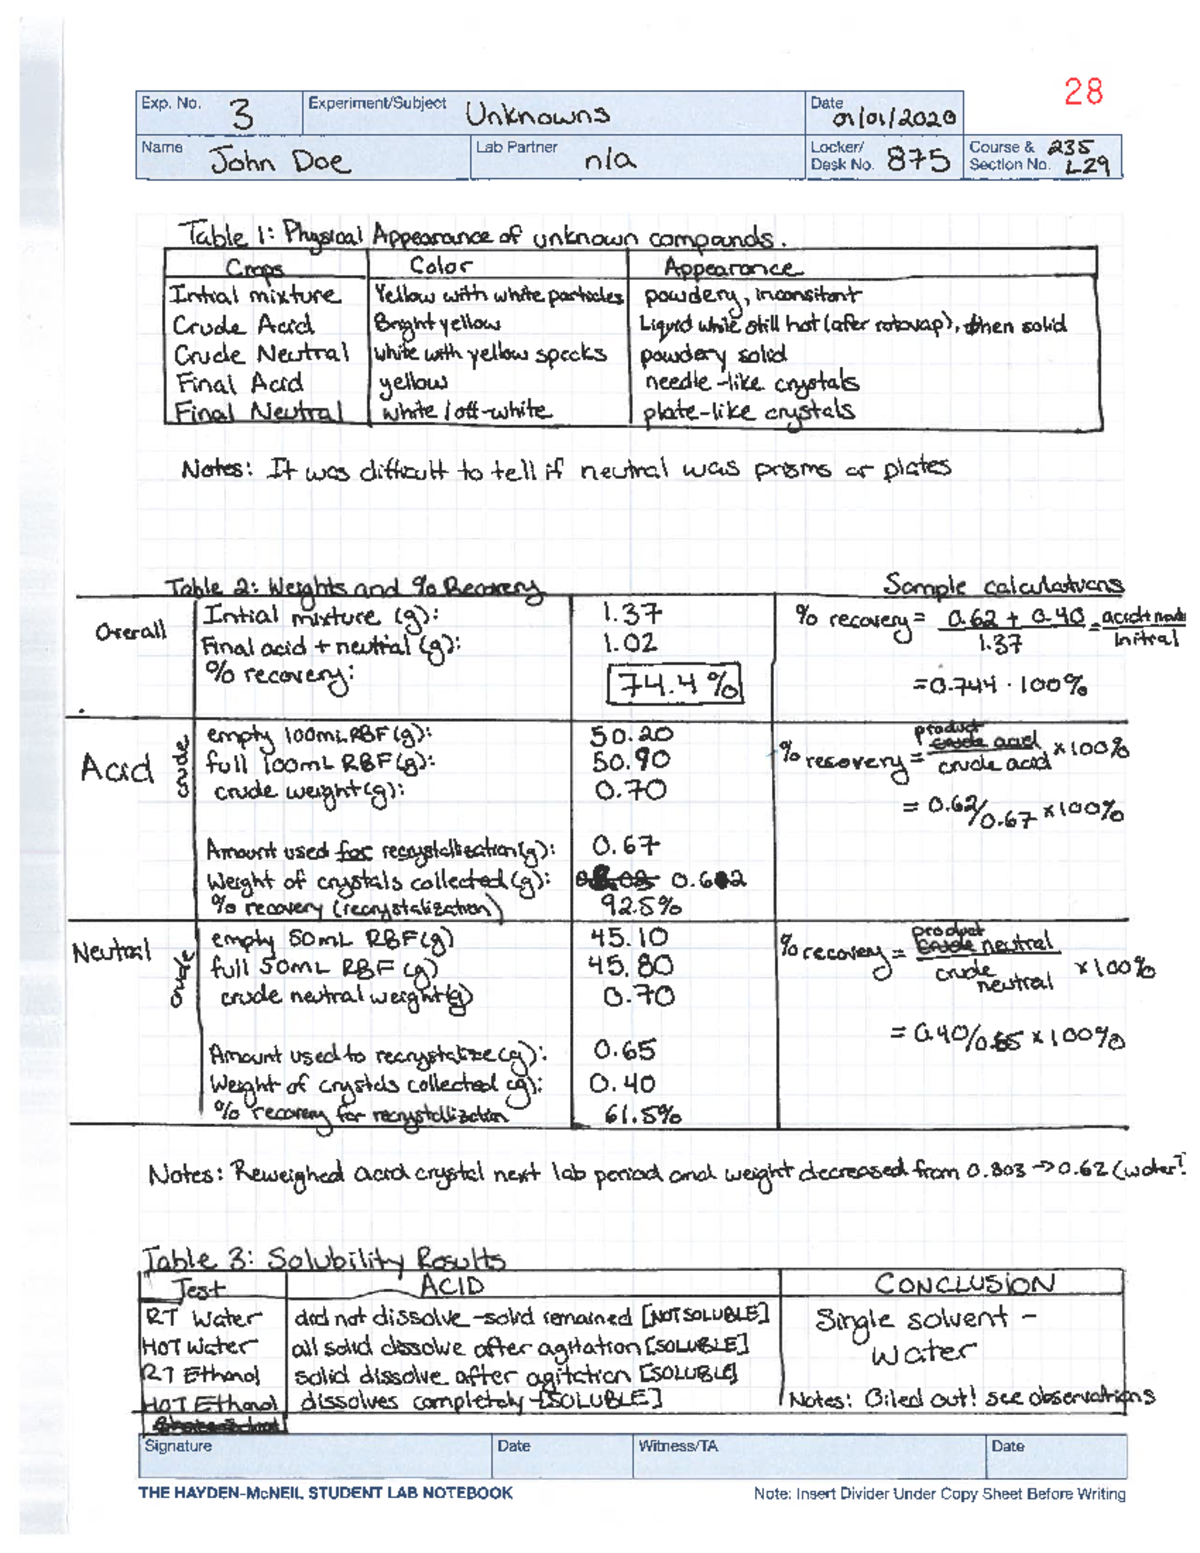 28
Exp. No. 3 Experiment/Subject Unknowns Date 01/01/2020
Name John Doe Lab Partner n/a Locker/ Desk No. 875 Course & Section No. 235 L29
Table 1: Physical Appearance of unknown compounds.
Crops Color Appearance
Intial mixture Yellow with white particles powdery, inconsitant
Crude Acid Bright yellow Liquid while still hot (afer rotovap), then solid
Crude Neutral white with yellow specks powdery solid
Final Acid yellow needle-like crystals
Final Neutral white / off-white plate-like crystals
Notes: It was difficult to tell if neutral was prisms or plates
Table 2: Weights and % Recovery Sample calculations
Overall Intial mixture (g): 1.37 % recovery = 0.62 + 0.40 / 1.37 = acid + neut / Initial
Final acid + neutral (g): 1.02
% recovery: 74.4% = 0.744 · 100%
Acid crude empty 100mL RBF (g): 50.20 % recovery = product crude acid / crude acid × 100%
full 100mL RBF (g): 50.90
crude weight (g): 0.70 = 0.62/0.67 × 100%
Amount used for recrystallization (g): 0.67
Weight of crystals collected (g): 0.62
% recovery (recrystalization) 92.5%
Neutral crude empty 50mL RBF (g) 45.10 % recovery = product crude neutral / crude neutral × 100%
full 50mL RBF (g) 45.80
crude neutral weight (g) 0.70
Amount used to recrystalize (g): 0.65 = 0.40/0.65 × 100%
Weight of crystals collected (g): 0.40
% recovery for recrystallization 61.5%
Notes: Reweighed acid crystal next lab period and weight decreased from 0.803 → 0.62 (water?
Table 3: Solubility Results
Test ACID CONCLUSION
RT Water did not dissolve - solid remained [NOT SOLUBLE] Single solvent -
HOT Water all solid dissolve after agitation [SOLUBLE] water
RT Ethanol solid dissolve after agitation [SOLUBLE]
HOT Ethanol dissolves completely - [SOLUBLE] Notes: Oiled out! see observations
Signature Date Witness/TA Date
THE HAYDEN-McNEIL STUDENT LAB NOTEBOOK Note: Insert Divider Under Copy Sheet Before Writing